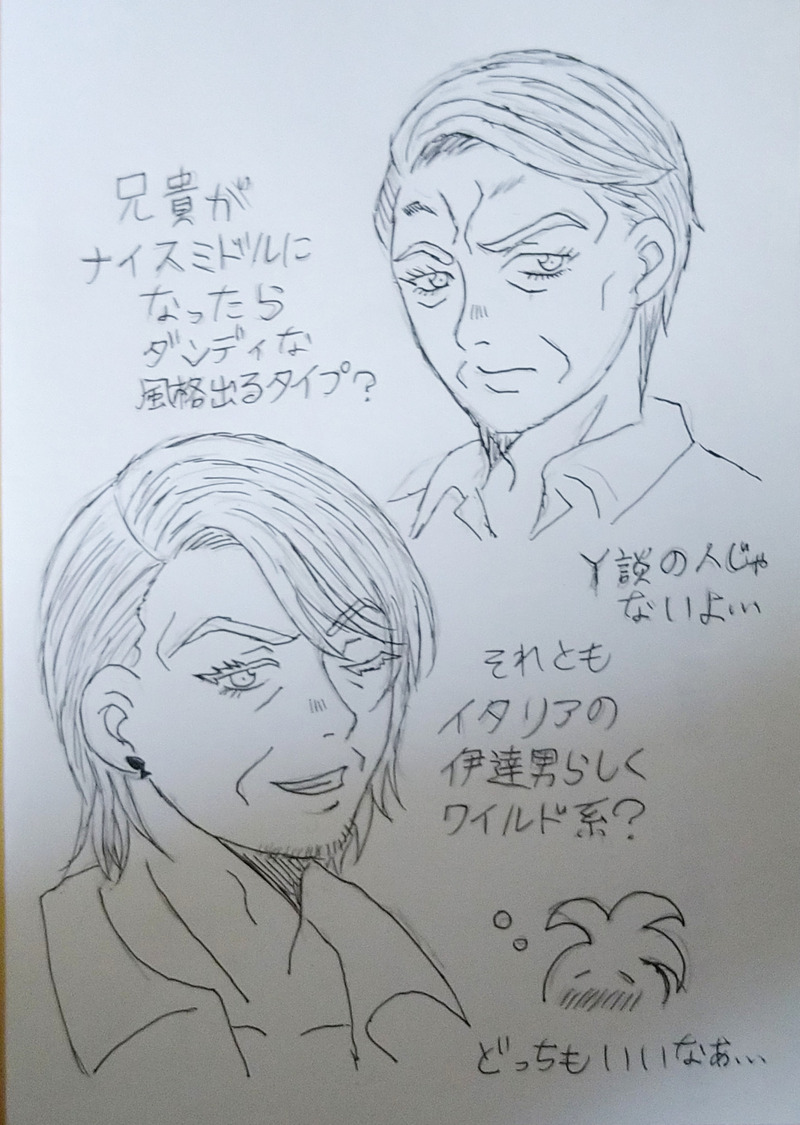 兄貴が
ナイスミドルに
なったら
ダンディな
風格出るタイプ?
Y談の人じゃ
ないよ…
それとも
イタリアの
伊達男らしく
ワイルド系?
どっちもいいなぁ…